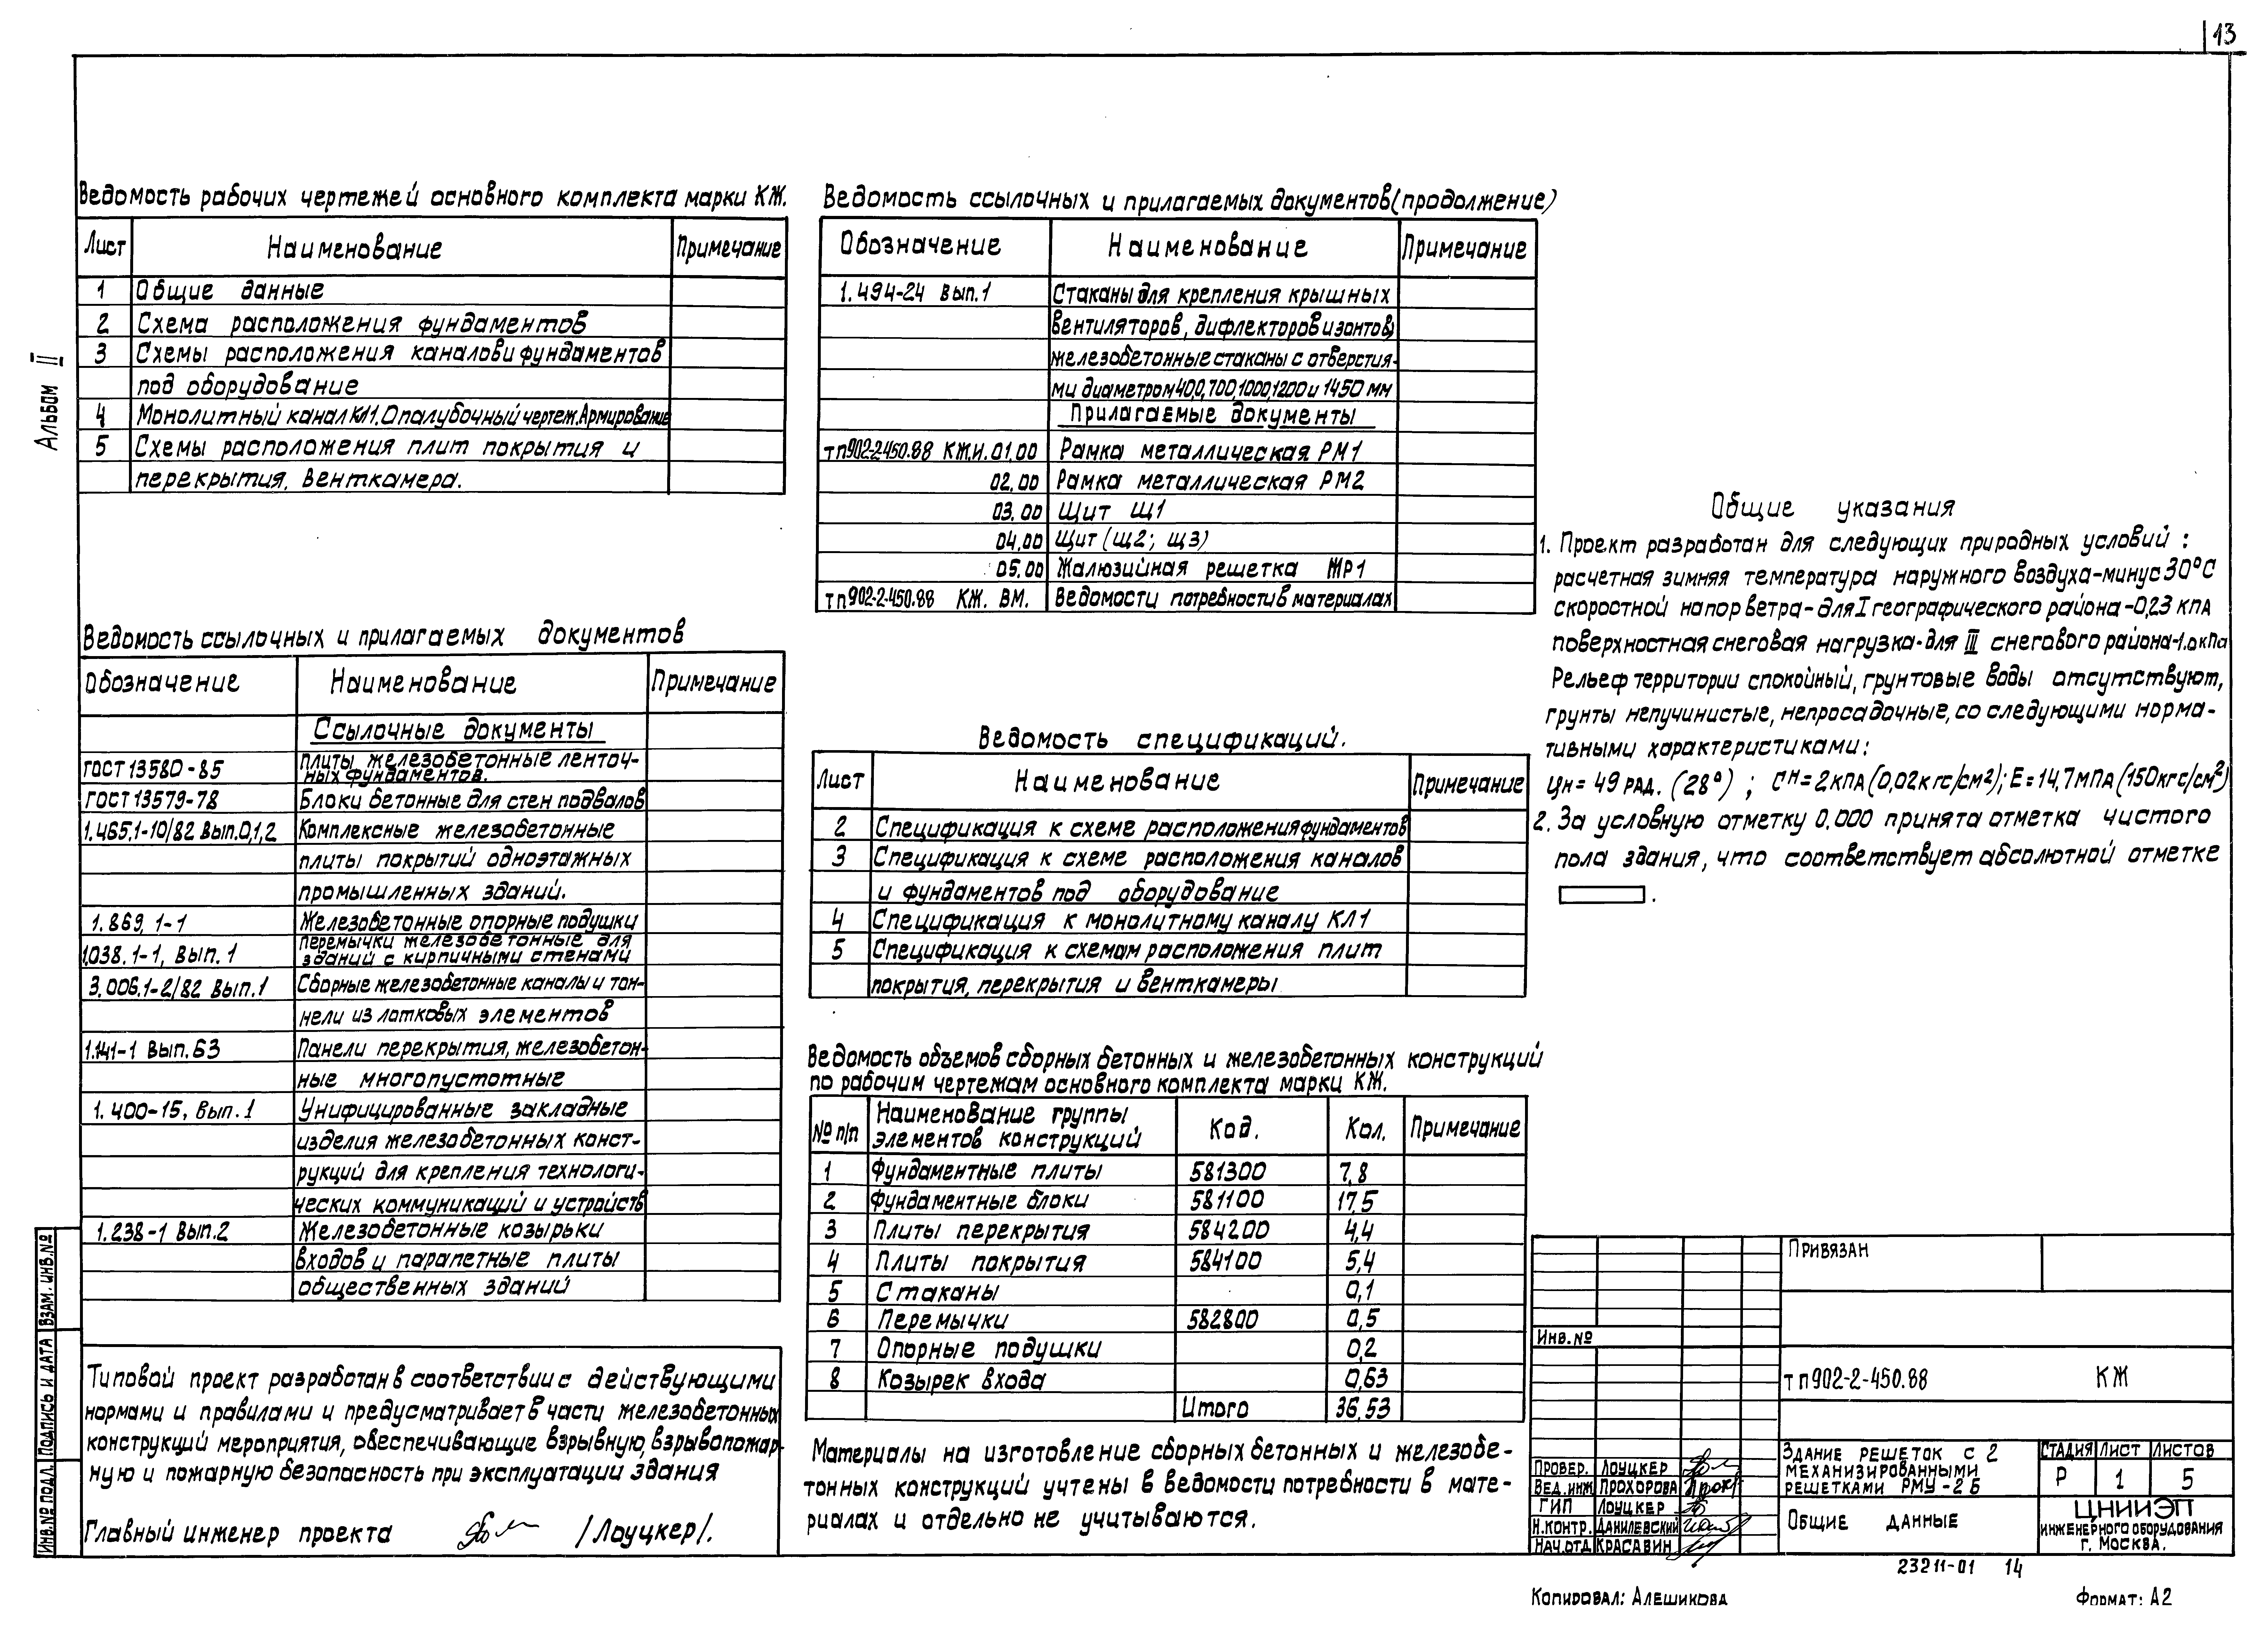 13
Альбом II
Ведомость рабочих чертежей основного комплекта марки КЖ.
Лист Наименование Примечание
1 Общие данные
2 Схема расположения фундаментов
3 Схемы расположения каналов и фундаментов
под оборудование
4 Монолитный канал КЛ1. Опалубочный чертеж. Армирование
5 Схемы расположения плит покрытия и
перекрытия. Венткамера.
Ведомость ссылочных и прилагаемых документов
Обозначение Наименование Примечание
Ссылочные документы
ГОСТ 13580-85 Плиты железобетонные ленточ-
ных фундаментов.
ГОСТ 13579-78 Блоки бетонные для стен подвалов
1.465.1-10/82 Вып.0,1,2 Комплексные железобетонные
плиты покрытий одноэтажных
промышленных зданий.
1.869,1-1 Железобетонные опорные подушки
1.038.1-1, Вып. 1 Перемычки железобетонные для
зданий с кирпичными стенами
3.006.1-2/82 Вып.1 Сборные железобетонные каналы и тон-
нели из лотковых элементов
1.141-1 Вып.63 Панели перекрытия, железобетон-
ные многопустотные
1.400-15, Вып.1 Унифицированные закладные
изделия железобетонных конст-
рукций для крепления технологи-
ческих коммуникаций и устройств
1.238-1 Вып.2 Железобетонные козырьки
входов и парапетные плиты
общественных зданий
Типовой проект разработан в соответствии с действующими
нормами и правилами и предусматривает в части железобетонных
конструкций мероприятия, обеспечивающие взрывную, взрывопожар-
ную и пожарную безопасность при эксплуатации здания
Главный инженер проекта /Лоуцкер/.
Ведомость ссылочных и прилагаемых документов (продолжение)
Обозначение Наименование Примечание
1.494-24 Вып.1 Стаканы для крепления крышных
вентиляторов, дифлекторов и зонтов;
железобетонные стаканы с отверстия-
ми диаметром 400,700,1000,1200 и 1450 мм
Прилагаемые документы
тп902-2-450.88 КЖ.И.01.00 Рамка металлическая РМ1
02.00 Рамка металлическая РМ2
03.00 Щит Щ1
04.00 Щит (Щ2; Щ3)
05.00 Жалюзийная решетка ЖР1
тп902-2-450.88 КЖ. ВМ. Ведомости потребности в материалах
Ведомость спецификаций.
Лист Наименование Примечание
2 Спецификация к схеме расположения фундаментов
3 Спецификация к схеме расположения каналов
и фундаментов под оборудование
4 Спецификация к монолитному каналу КЛ1
5 Спецификация к схемам расположения плит
покрытия, перекрытия и венткамеры
Ведомость объемов сборных бетонных и железобетонных конструкций
по рабочим чертежам основного комплекта марки КЖ.
№ п/п Наименование группы элементов конструкций Код. Кол. Примечание
1 Фундаментные плиты 581300 7,8
2 Фундаментные блоки 581100 17,5
3 Плиты перекрытия 584200 4,4
4 Плиты покрытия 584100 5,4
5 Стаканы 0,1
6 Перемычки 582800 0,5
7 Опорные подушки 0,2
8 Козырек входа 0,63
Итого 36,53
Материалы на изготовление сборных бетонных и железобе-
тонных конструкций учтены в ведомости потребности в мате-
риалах и отдельно не учитываются.
Общие указания
1. Проект разработан для следующих природных условий:
расчетная зимняя температура наружного воздуха-минус 30°С
скоростной напор ветра-для I географического района-0,23 кПа
поверхностная снеговая нагрузка-для III снегового района-1.0 кПа
Рельеф территории спокойный, грунтовые воды отсутствуют,
грунты непучинистые, непросадочные, со следующими норма-
тивными характеристиками:
φн = 49 рад. (28°); Сн = 2кПа (0,02кгс/см²); Е = 14,7МПа (150кгс/см²)
2. За условную отметку 0.000 принята отметка чистого
пола здания, что соответствует абсолютной отметке
.
Привязан
Инв.№
тп902-2-450.88 КЖ
Провер. Лоуцкер
Вед.инж. Прохорова
ГИП Лоуцкер
Н.контр. Данилевский
Нач.отд. Красавин
Здание решеток с 2
механизированными
решетками РМУ-2Б
Стадия Лист Листов
Р 1 5
Общие данные
ЦНИИЭП
инженерного оборудования
г. Москва.
23211-01 14
Копировал: Алешикова
Формат: А2
Инв.№ подл. Подпись и дата Взам. инв.№